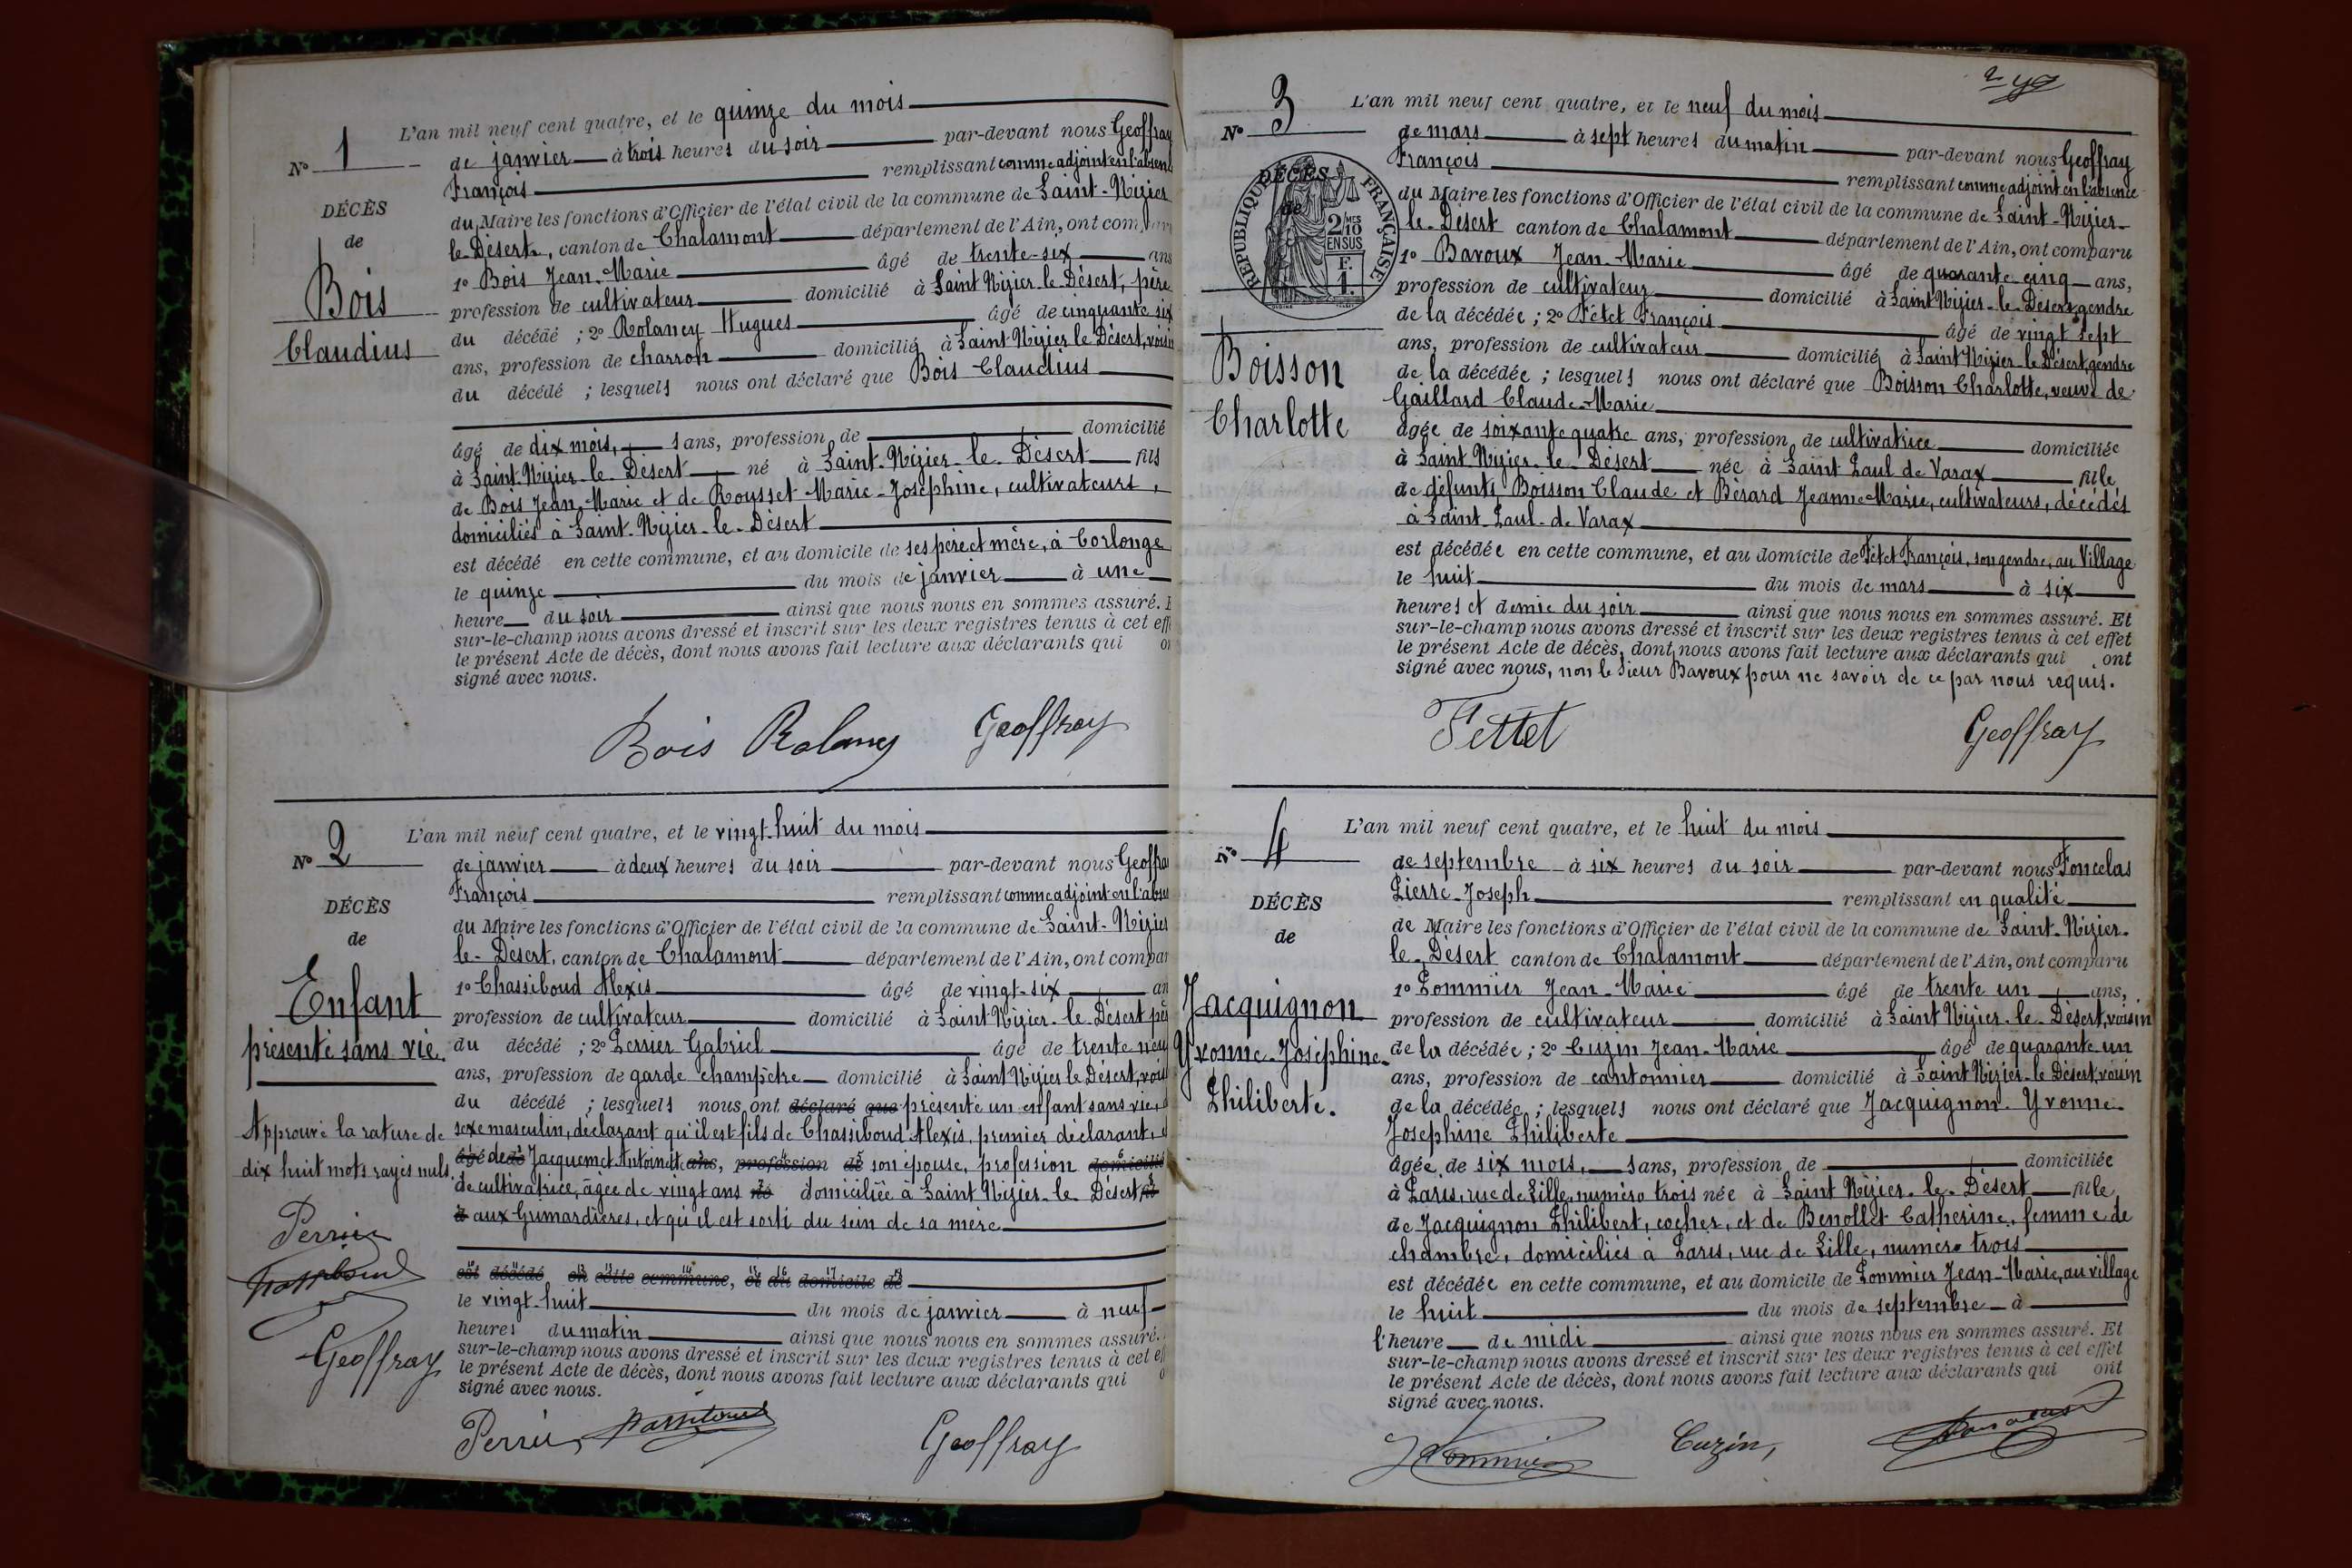 L'an mil neuf cent quatre, et le quinze du mois
No 1
de janvier à trois heures du soir par-devant nous Geoffray
François remplissant comme adjoint en l'absen
DÉCÈS
du Maire les fonctions d'Officier de l'état civil de la commune de Saint-Nizier
de
le-Désert, canton de Chalamont département de l'Ain, ont com
Bois
1o Bois Jean-Marie âgé de trente-six ans
profession de cultivateur domicilié à Saint Nizier-le-Désert, père
Claudius
du décédé ; 2o Rolancy Hugues âgé de cinquante six
ans, profession de charron domicilié à Saint Nizier le Désert, voisin
du décédé ; lesquels nous ont déclaré que Bois Claudius
âgé de dix mois, sans, profession de domicilié
à Saint-Nizier-le-Désert né à Saint-Nizier-le-Désert fils
de Bois Jean-Marie et de Rousset Marie-Joséphine, cultivateurs,
domiciliés à Saint-Nizier-le-Désert
est décédé en cette commune, et au domicile de ses père et mère, à Corlonge
le quinze du mois de janvier à une
heure du soir ainsi que nous nous en sommes assuré.
sur-le-champ nous avons dressé et inscrit sur les deux registres tenus à cet eff
le présent Acte de décès, dont nous avons fait lecture aux déclarants qui
signé avec nous.
Bois Rolancy Geoffray
L'an mil neuf cent quatre, et le vingt-huit du mois
No 2
de janvier à deux heures du soir par-devant nous Geoffra
François remplissant comme adjoint en l'abse
DÉCÈS
du Maire les fonctions d'Officier de l'état civil de la commune de Saint-Nizier
de
le-Désert, canton de Chalamont département de l'Ain, ont compar
Enfant
1o Chassiboud Alexis âgé de vingt-six an
profession de cultivateur domicilié à Saint Nizier-le-Désert pè
présenté sans vie.
du décédé ; 2o Perrier Gabriel âgé de trente neuf
ans, profession de garde champêtre domicilié à Saint Nizier le Désert, vois
du décédé ; lesquels nous ont déclaré que présenté un enfant sans vie,
Approuvé la rature de
sexe masculin, déclarant qu'il est fils de Chassiboud Alexis, premier déclarant,
dix huit mots rayés nuls.
âgé de de Jacquemet Antoinette ans, profession de son épouse, profession domicilié
de cultivatrice, âgée de vingt ans né domiciliée à Saint Nizier-le-Désert fils
à aux Grimardières, et qu'il est sorti du sein de sa mère
Perrier
est décédé en cette commune, et au domicile de
le vingt-huit du mois de janvier à neuf
heures du matin ainsi que nous nous en sommes assuré.
Geoffray
sur-le-champ nous avons dressé et inscrit sur les deux registres tenus à cet ef
le présent Acte de décès, dont nous avons fait lecture aux déclarants qui
signé avec nous.
Perrier Geoffray
L'an mil neuf cent quatre, et le neuf du mois
No 3
de mars à sept heures du matin par-devant nous Geoffray
François remplissant comme adjoint en l'absence
RÉPUBLIQUE FRANÇAISE
DÉCÈS
de
2/10 MES
EN SUS
F.
1.
du Maire les fonctions d'Officier de l'état civil de la commune de Saint-Nizier-
le-Désert canton de Chalamont département de l'Ain, ont comparu
1o Bavoux Jean-Marie âgé de quarante cinq ans,
profession de cultivateur domicilié à Saint Nizier-le-Désert, gendre
de la décédée ; 2o Fétet François âgé de vingt sept
ans, profession de cultivateur domicilié à Saint Nizier-le-Désert, gendre
Boisson
de la décédée ; lesquels nous ont déclaré que Boisson Charlotte, veuve de
Gaillard Claude-Marie
Charlotte
âgée de soixante quatre ans, profession de cultivatrice domiciliée
à Saint Nizier-le-Désert née à Saint Paul de Varax fille
de défunts Boisson Claude et Bérard Jeanne-Marie, cultivateurs, décédés
à Saint-Paul-de Varax
est décédée en cette commune, et au domicile de Fétet François, son gendre, au Village
le huit du mois de mars à six
heures et demie du soir ainsi que nous nous en sommes assuré. Et
sur-le-champ nous avons dressé et inscrit sur les deux registres tenus à cet effet
le présent Acte de décès, dont nous avons fait lecture aux déclarants qui ont
signé avec nous, non le sieur Bavoux pour ne savoir de ce par nous requis.
Fettet Geoffray
L'an mil neuf cent quatre, et le huit du mois
No 4
de septembre à six heures du soir par-devant nous Foncelas
Pierre-Joseph remplissant en qualité
DÉCÈS
de Maire les fonctions d'Officier de l'état civil de la commune de Saint-Nizier-
de
le-Désert canton de Chalamont département de l'Ain, ont comparu
Jacquignon
1o Pommier Jean-Marie âgé de trente un ans,
profession de cultivateur domicilié à Saint Nizier-le-Désert, voisin
Yvonne-Joséphine-
de la décédée ; 2o Cuzin Jean-Marie âgé de quarante un
ans, profession de cantonnier domicilié à Saint Nizier-le Désert, voisin
Philiberte.
de la décédée ; lesquels nous ont déclaré que Jacquignon Yvonne-
Joséphine Philiberte
âgée de six mois, sans, profession de domiciliée
à Paris, rue de Lille, numéro trois née à Saint Nizier-le-Désert fille
de Jacquignon Philibert, cocher, et de Benollet Catherine, femme de
chambre, domiciliés à Paris, rue de Lille, numéro trois
est décédée en cette commune, et au domicile de Pommier Jean-Marie, au village
le huit du mois de septembre à
l'heure de midi ainsi que nous nous en sommes assuré. Et
sur-le-champ nous avons dressé et inscrit sur les deux registres tenus à cet effet
le présent Acte de décès, dont nous avons fait lecture aux déclarants qui ont
signé avec nous.
Pommier Cuzin,